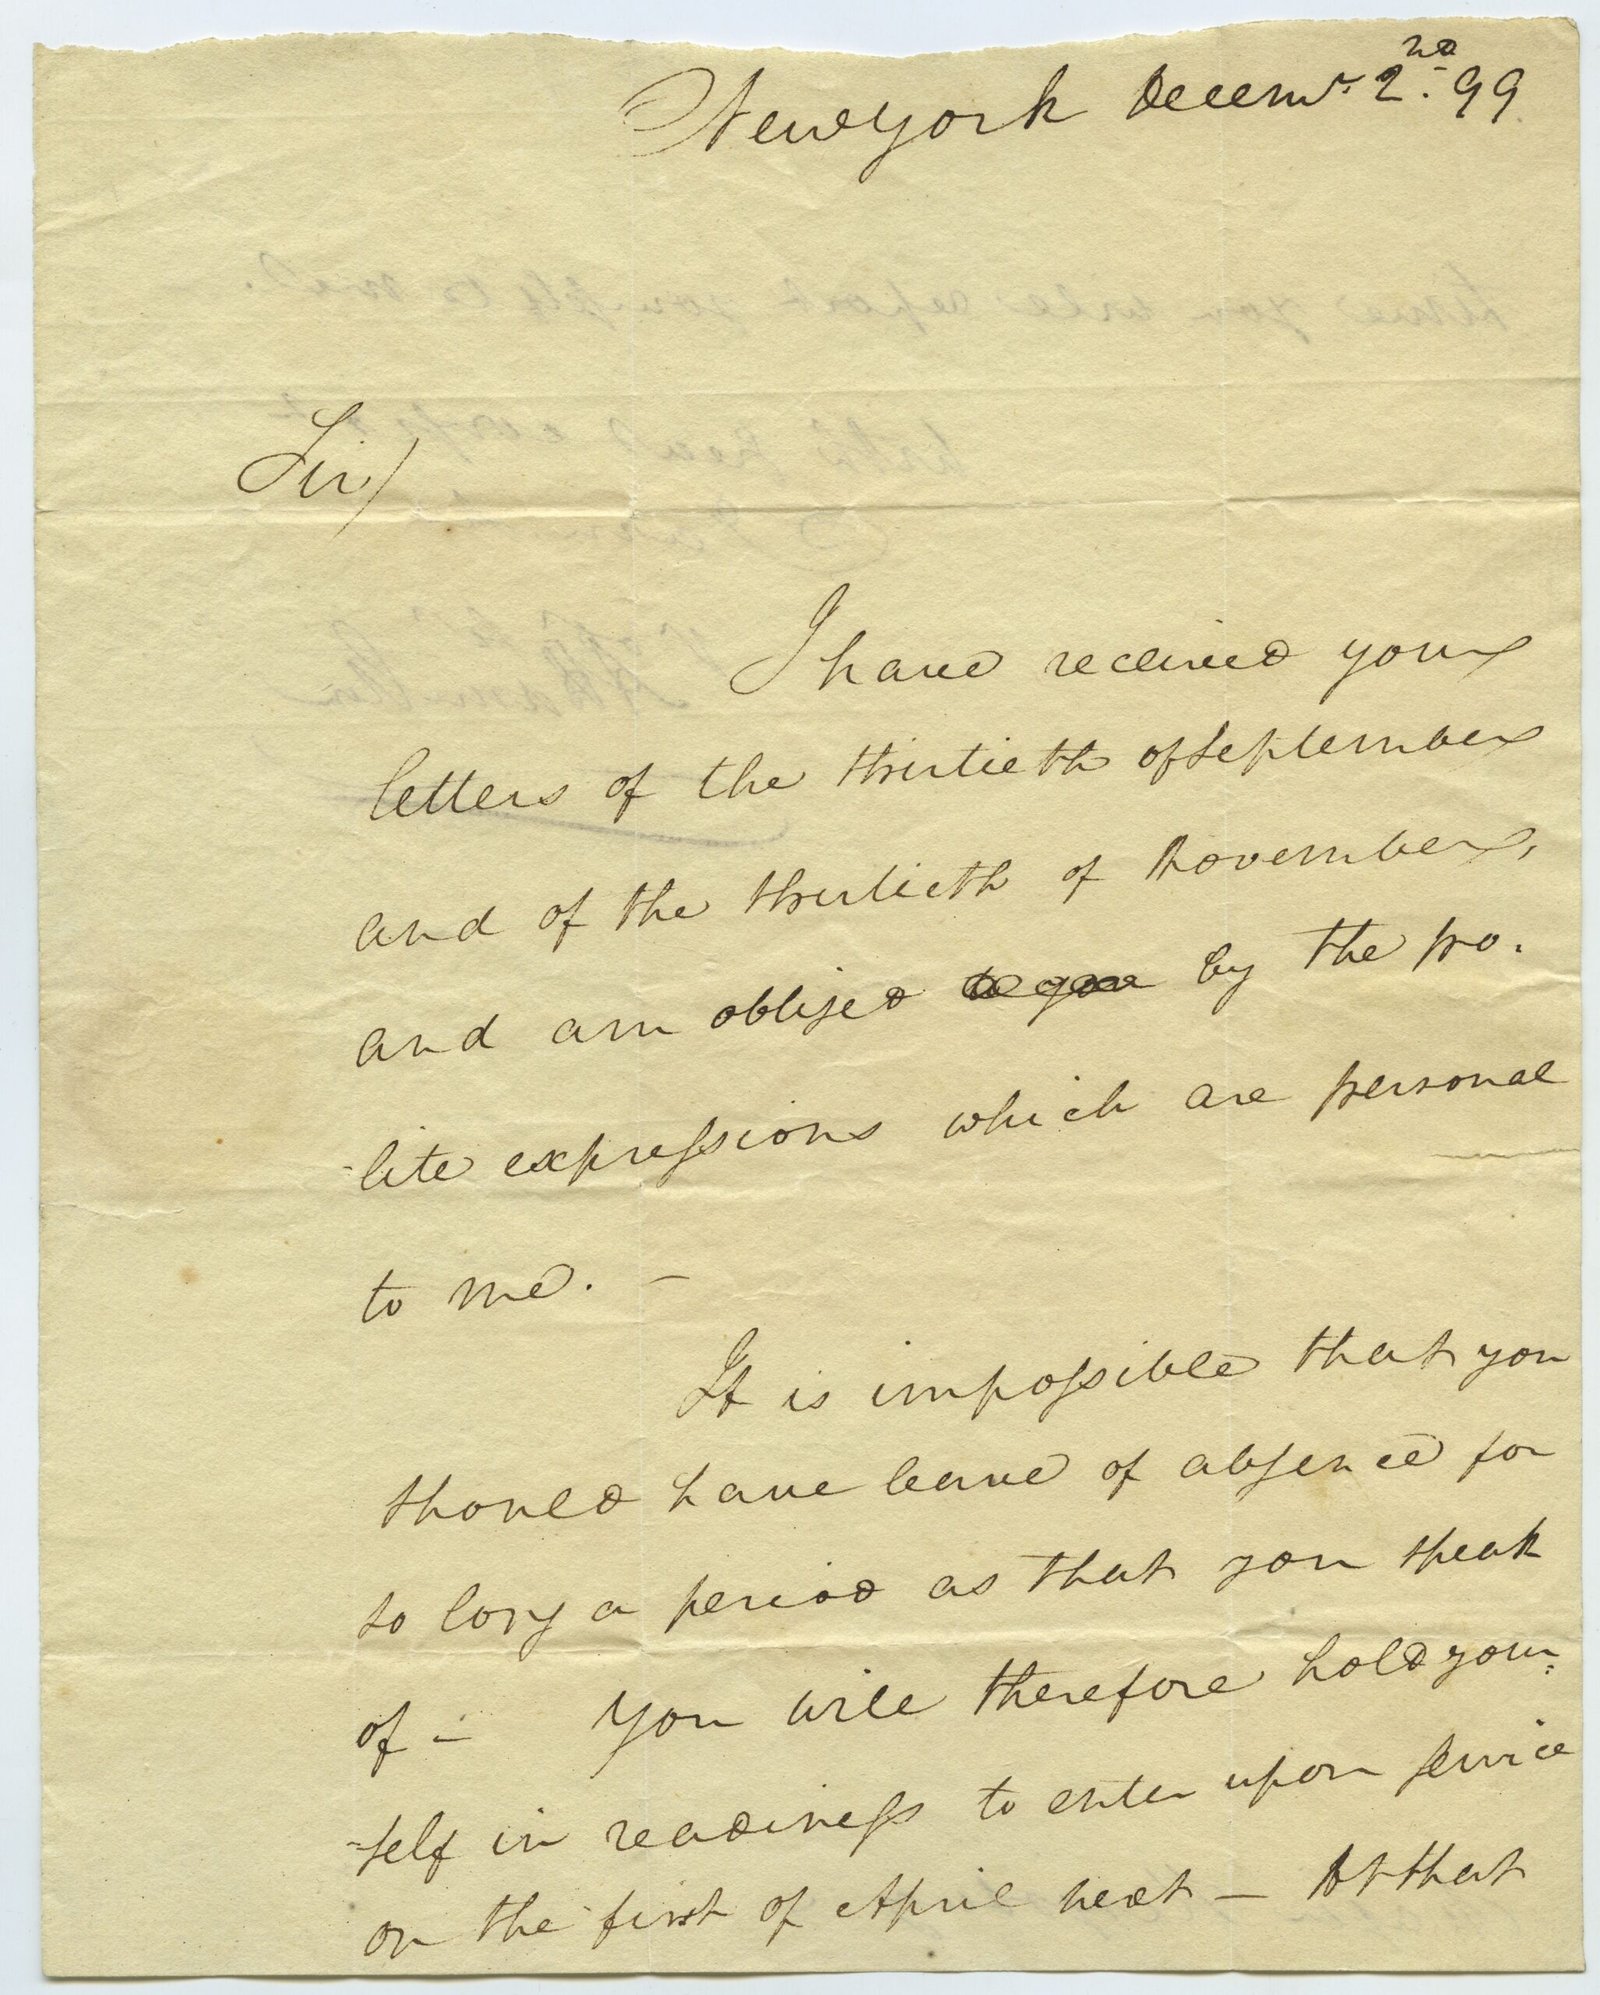 New York Decemr. 2nd. 99
Sir/
I have received your
letters of the thirtieth of September
and of the thirtieth of November,
and am obliged to you by the po-
-lite expressions which are personal
to me. —
It is impossible that you
should have leave of absence for
so long a period as that you speak
of — You will therefore hold your=
-self in readiness to enter upon service
on the first of April next — At that
time you will report yourself to me.
with great
A Hamilton